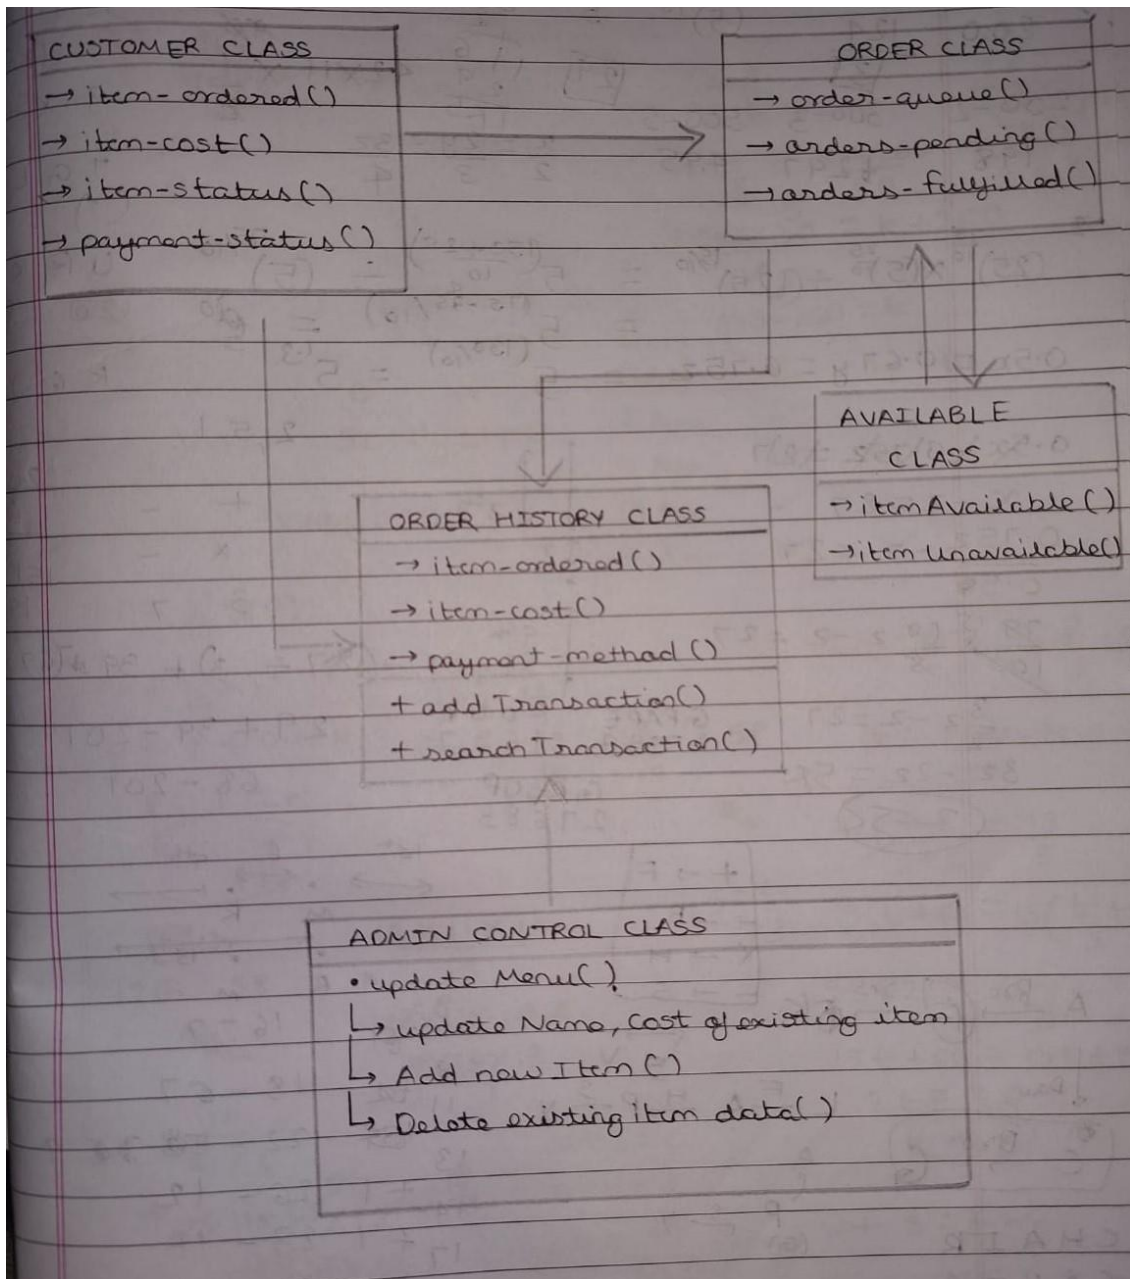 CUSTOMER CLASS
→ item-ordered()
→ item-cost()
→ item-status()
→ payment-status()
ORDER CLASS
→ order-queue()
→ orders-pending()
→ orders-fulfilled()
AVAILABLE
CLASS
→ itemAvailable()
→ itemUnavailable()
ORDER HISTORY CLASS
→ item-ordered()
→ item-cost()
→ payment-method()
+ addTransaction()
+ searchTransaction()
ADMIN CONTROL CLASS
• update Menu()
↳ update Name, Cost of existing item
↳ Add new Item()
↳ Delete existing item data()